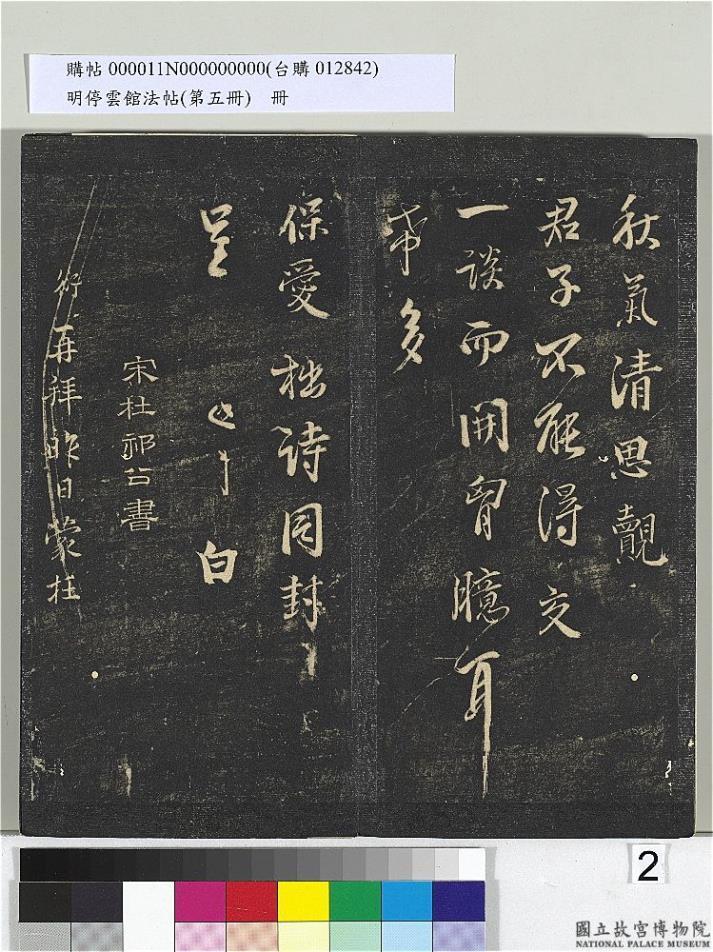 購帖 000011N000000000(台購 012842)
明停雲館法帖(第五冊) 冊
秋氣清思覿
君子不能得文
一談而開胷臆耳
希多
保愛拙詩同封
呈 白
宋杜祁公書
衍再拜昨日蒙枉
2
國立故宮博物院
NATIONAL PALACE MUSEUM